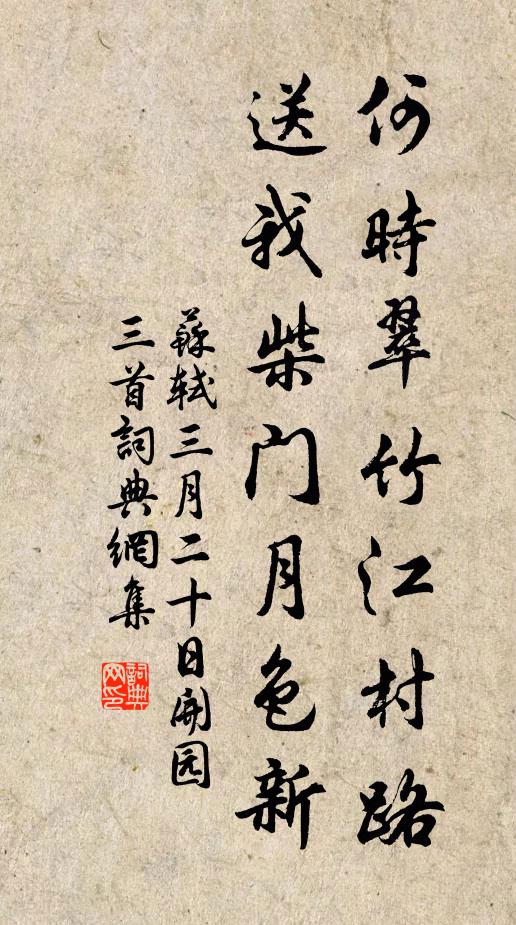 何時翠竹江村路
送我柴门月色新
蘇軾三月二十日開园
三首詞典網集
詞典
网印